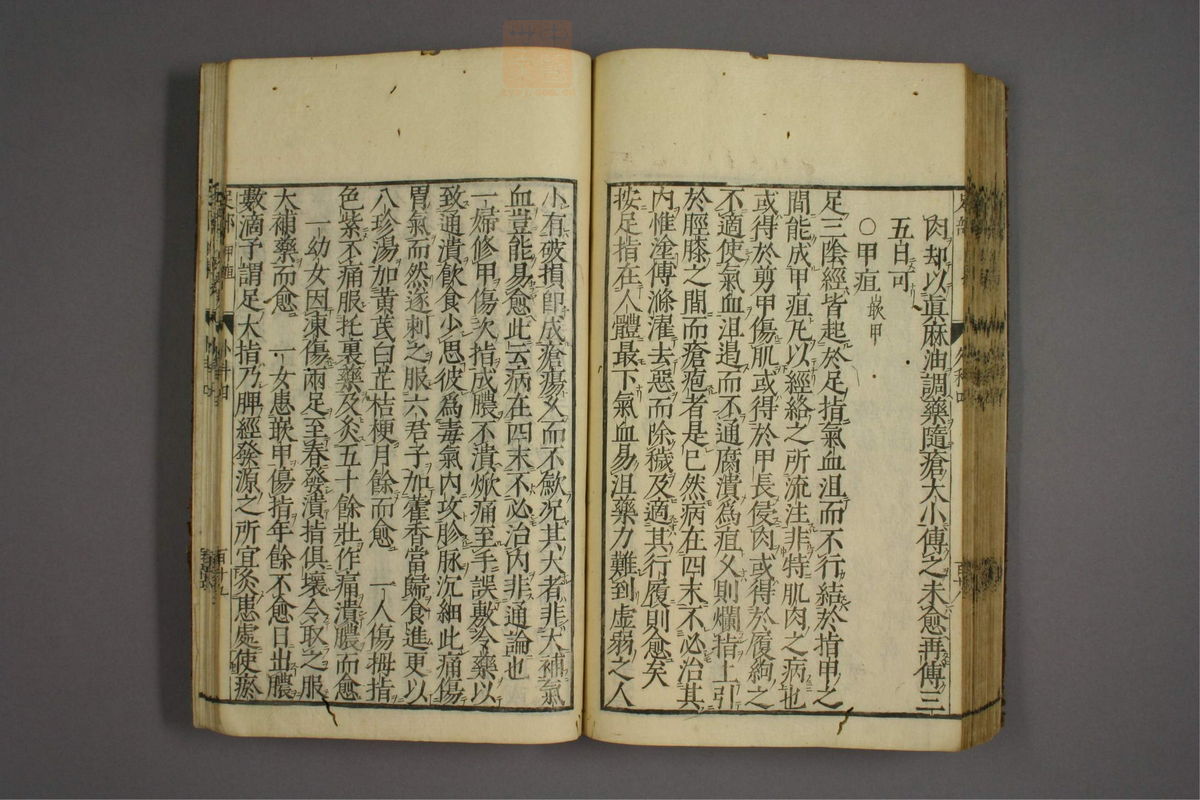 肉却以真麻油調藥隨瘡大小傅之未愈再傅三
五日可
○甲疽 嵌甲
足三陰經皆起於足指氣血沮而不行結於指甲之
間能成甲疽尤以經絡之所流注非特肌肉之病也
或得於剪甲傷肌或得於甲長侵肉或得於履絇之
不適使氣血沮遏而不通腐潰爲疽久則爛指上引
於脛膝之間而瘡疱者是已然病在四末不必治其
內惟塗傅滌濯去惡而除穢及適其行履則愈矣
按足指在人體最下氣血易沮藥力難到虛弱之人
小有破損卽成瘡瘍久而不歛况其大者非大補氣
血豈能易愈此云病在四末不必治內非通論也
一婦修甲傷次指成膿不潰焮痛至手誤敷冷藥以
致通潰飲食少思彼爲毒氣內攻胗脉沉細此痛傷
胃氣而然遂刺之服六君子加藿香當歸食進更以
八珍湯加黄芪白芷桔梗月餘而愈 一人傷拇指
色紫不痛服托裏藥及灸五十餘壯作痛潰膿而愈
一幼女因凍傷兩足至春發潰指俱壞令取之服
大補藥而愈 一女患嵌甲傷指年餘不愈日出膿
數滴予謂足大指乃脾經發源之所宜灸患處使瘀